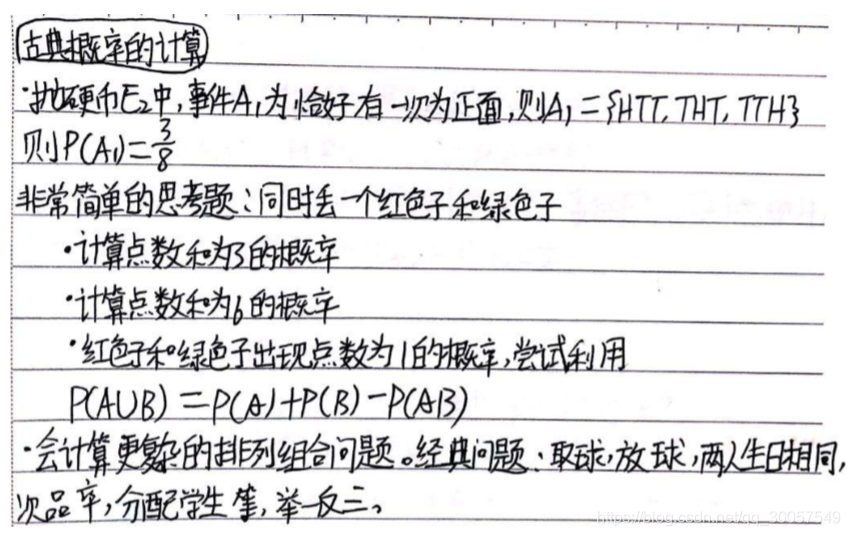 古典概率的计算
·抛硬币E₂中,事件A₁为恰好有一次为正面,则A₁={HTT,THT,TTH}
则P(A₁)=3/8
非常简单的思考题:同时丢一个红色子和绿色子
·计算点数和为3的概率
·计算点数和为6的概率
·红色子和绿色子出现点数为1的概率,尝试利用
P(A∪B)=P(A)+P(B)-P(AB)
·会计算更复杂的排列组合问题。经典问题:取球,放球,两人生日相同,
次品率,分配学生等,举一反三。
https://blog.csdn.net/qq_30057549